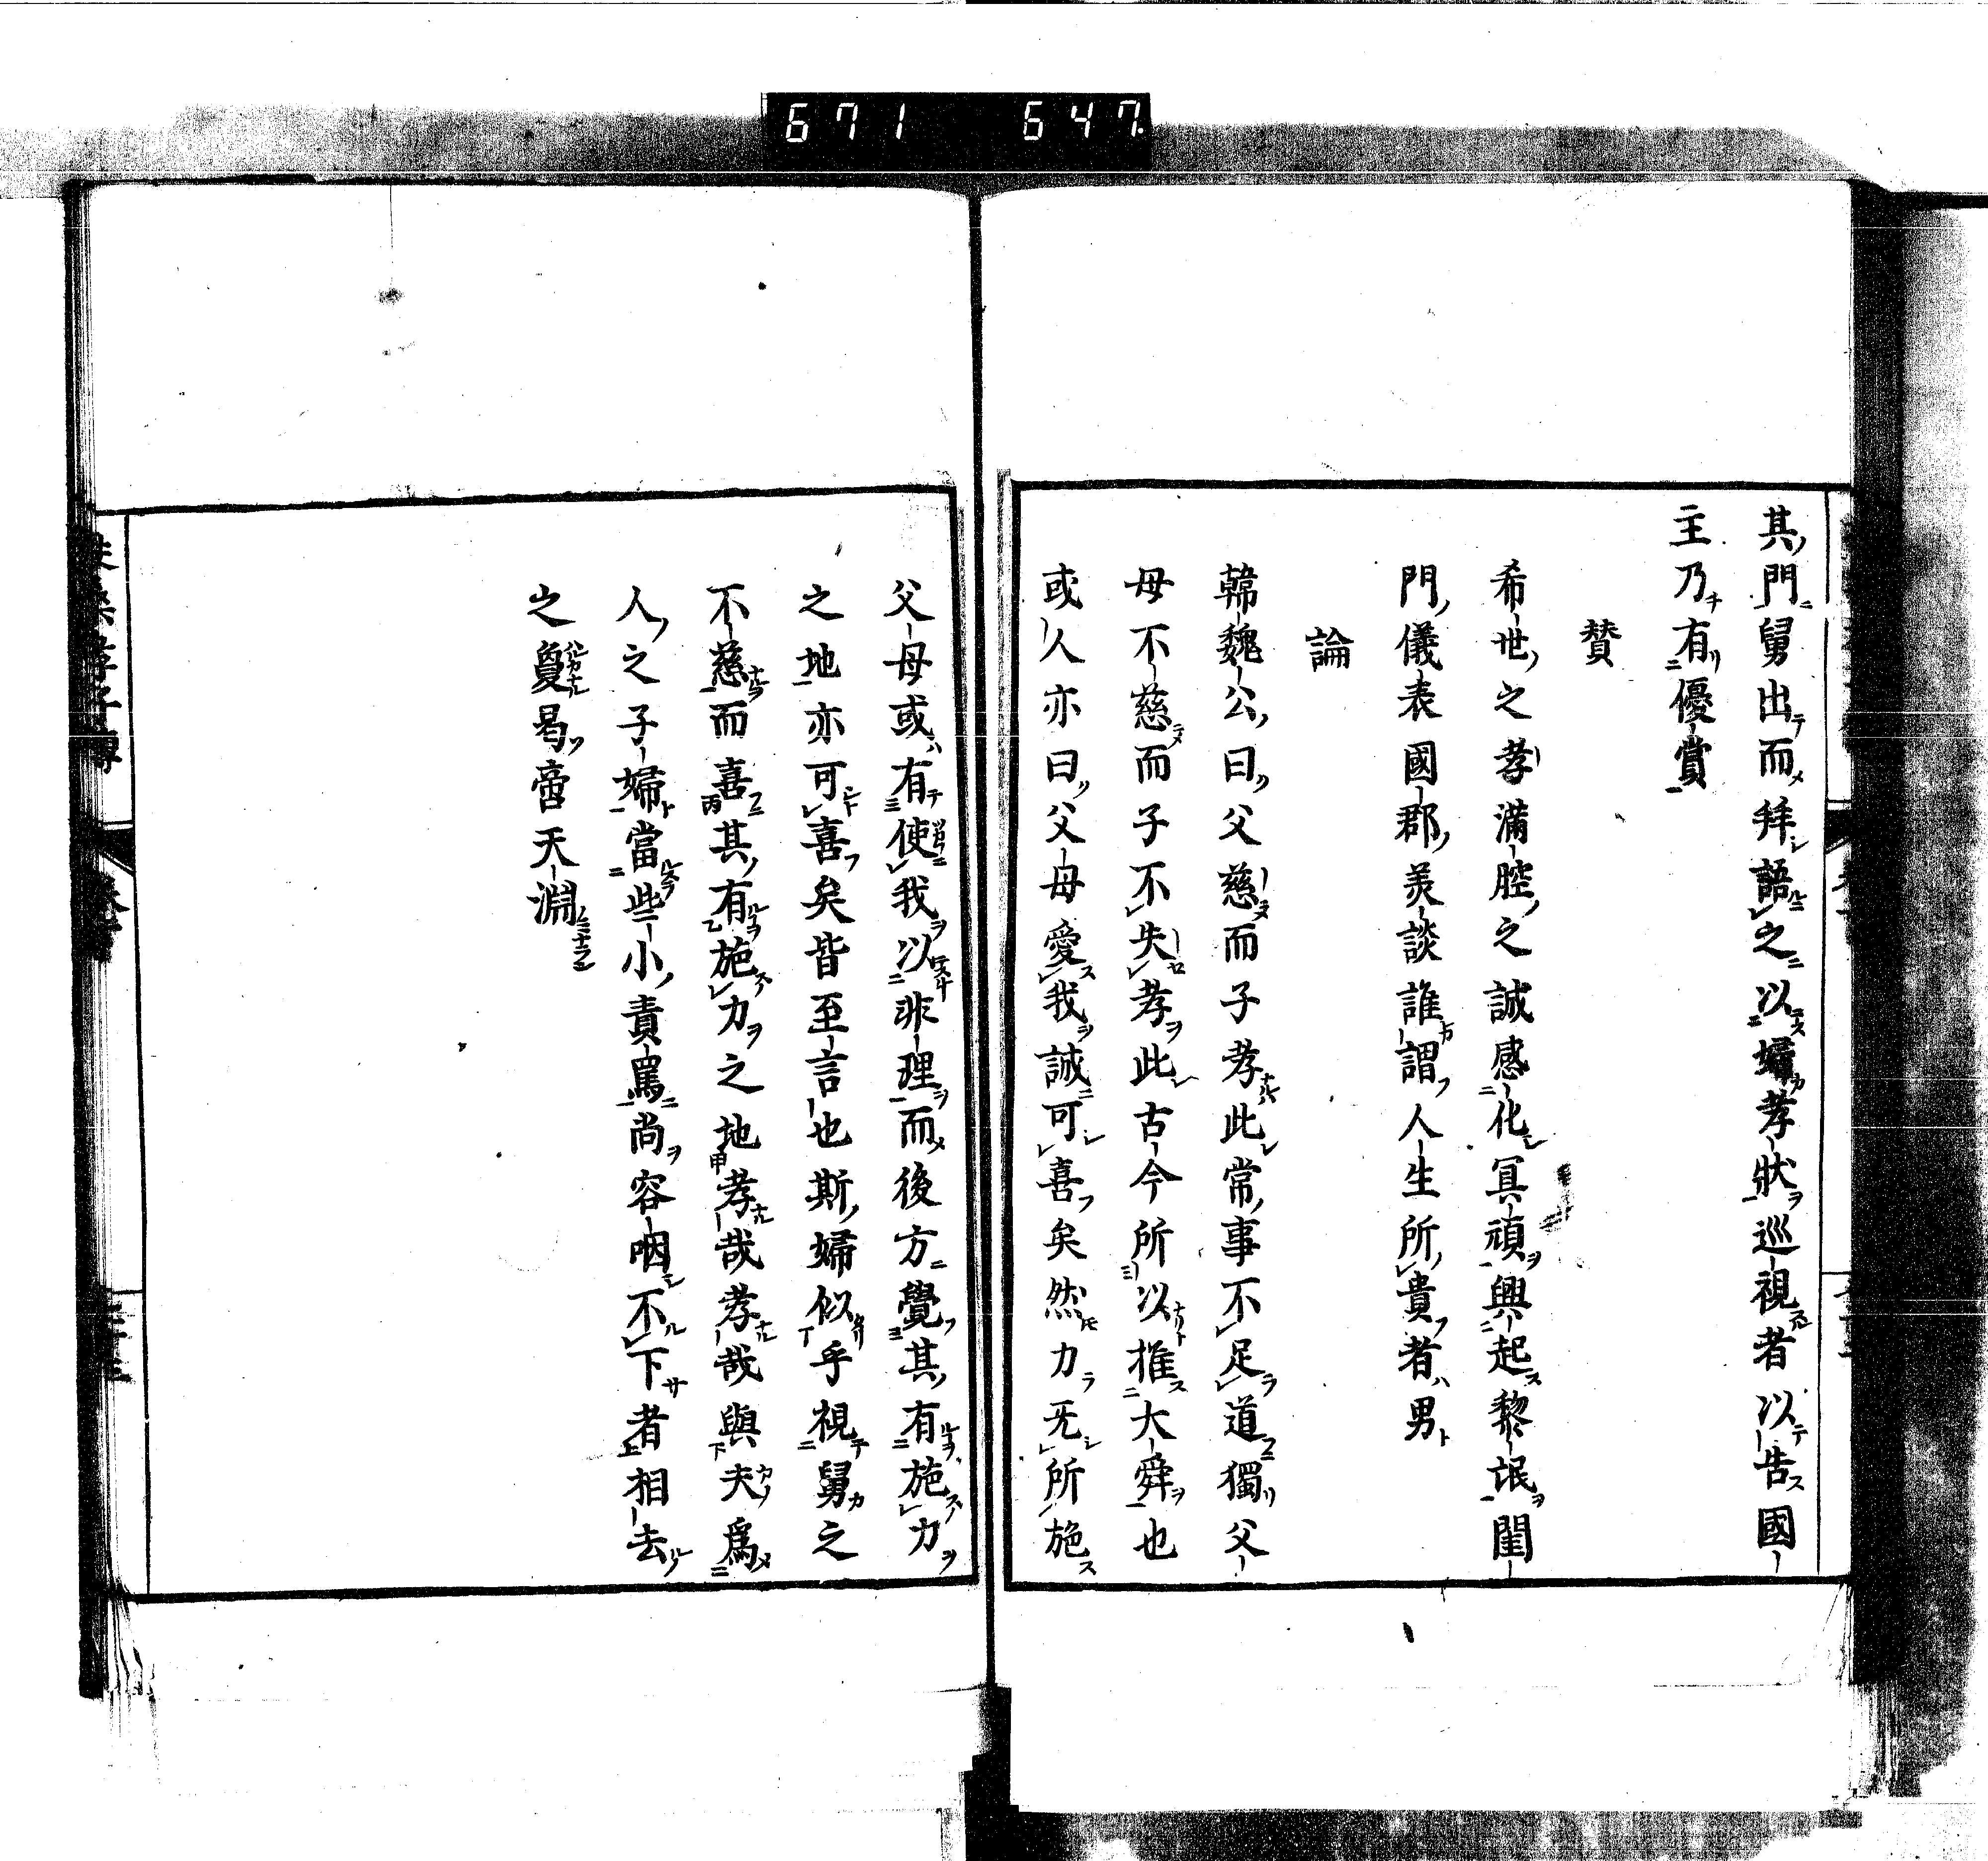 671 647
其門舅出而拜語之以婦孝狀巡視者以告國
主乃有優賞
賛
希世之孝滿腔之誠感化冥頑興起黎氓閨
門儀表國郡羙談誰謂人生所貴者男
論
韓魏公曰父慈而子孝此常事不足道獨父
母不慈而子不失孝此古今所以推大舜也
或人亦曰父母愛我誠可喜矣然力无所施
父母或有使我以非理而後方覺其有施力
之地亦可喜矣皆至言也斯婦似乎視舅之
不慈而喜其有施力之地孝哉孝哉與夫爲
人之子婦當些小責罵尚容咽不下者相去
之敻曷啻天淵